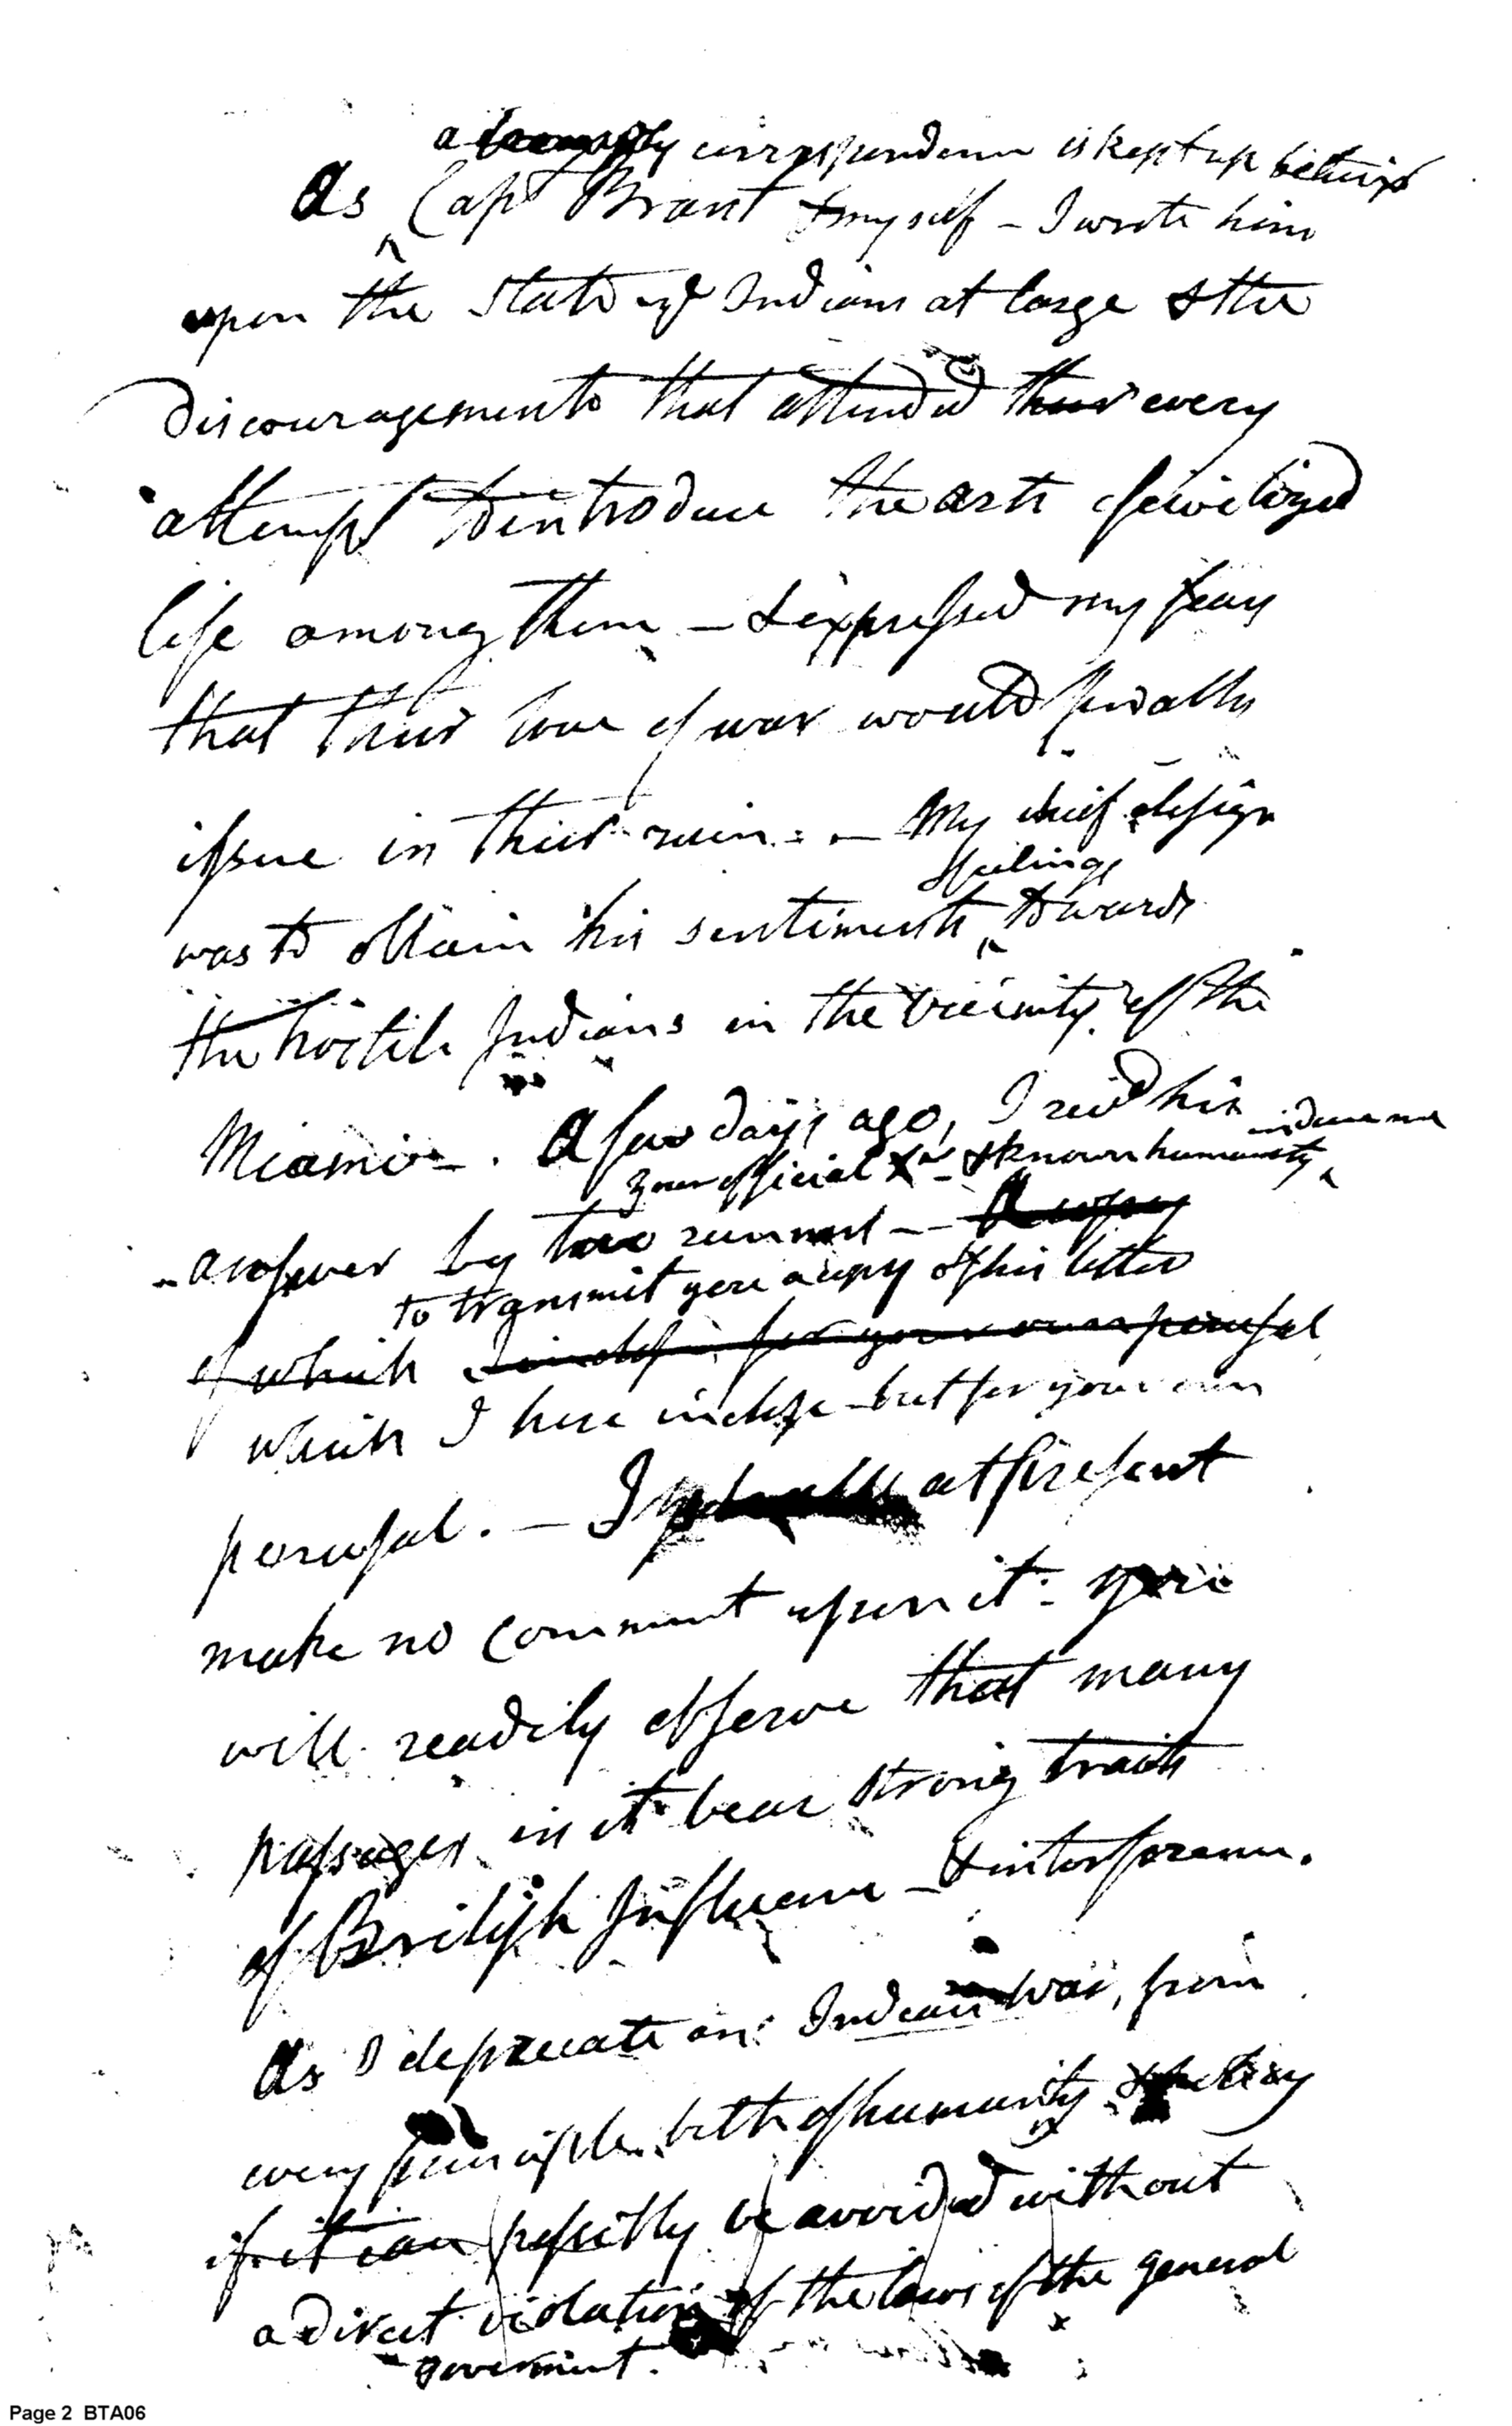 a correspondence is kept up betwixt
As Capt Brant & myself – I wrote him
upon the State of Indians at large & the
discouragements that attended their every
attempt to introduce the arts of civilized
life among them – & expressed my fears
that their love of war would finally
issue in their ruin. – My chief design
feelings
was to obtain his sentiments towards
the hostile Indians in the vicinity of the
Miami –. A few days ago, I recd his
induce me
your official & known humanity
answer by two runners – A copy
to transmit you a copy of his letter
of which I inclose for your own perusal
which I here inclose but for your own
perusal. – I at present
make no comment upon it: you
will readily observe that many
passages in it bear strong traits
of British Influence – & interference.
As I deprecate an Indian war, from
every principle both of humanity & policy
if it can possibly be avoided without
a direct violation of the laws of the general
goverment.
Page 2 BTA06